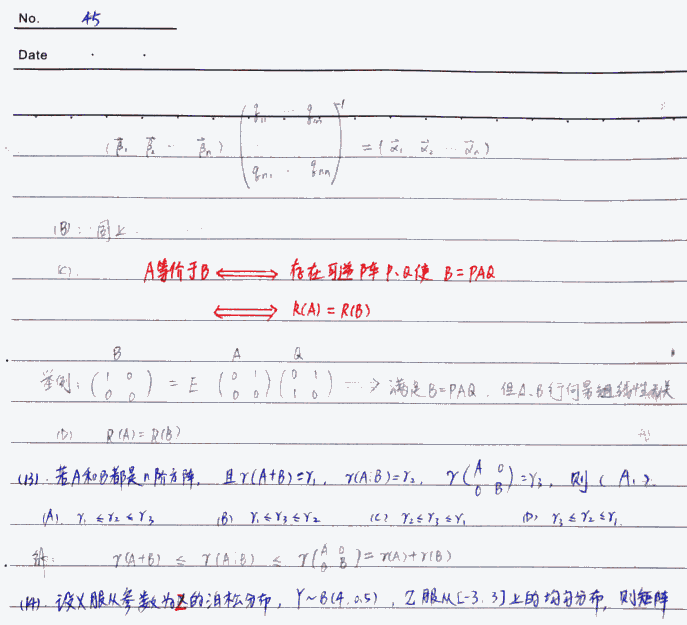 No. 45
Date
(β⃗₁ β⃗₂ ⋯ β⃗ₙ) (q₁₁ ⋯ q₁ₙ
qₙ₁ ⋯ qₙₙ)⁻¹ = (α⃗₁ α⃗₂ ⋯ α⃗ₙ)
(B): 同上
(C). A等价于B ⟺ 存在可逆阵P、Q使 B=PAQ
⟺ R(A)=R(B)
B A Q
举例: (1 0
0 0) = E (0 1
0 0) (0 1
1 0) ⋯> 满足B=PAQ, 但A、B行向量组线性
(D) R(A)=R(B)
(13). 若A和B都是n阶方阵, 且r(A+B)=r₁, r(A⋮B)=r₂, r(A 0
0 B)=r₃, 则( A. ).
(A) r₁≤r₂≤r₃ (B) r₁≤r₃≤r₂ (C) r₂≤r₃≤r₁ (D) r₃≤r₂≤r₁.
解: r(A+B) ≤ r(A⋮B) ≤ r(A 0
0 B) = r(A)+r(B)
(14). 设X服从参数为2的泊松分布, Y~B(4, 0.5), Z服从[-3, 3]上的均匀分布, 则矩阵